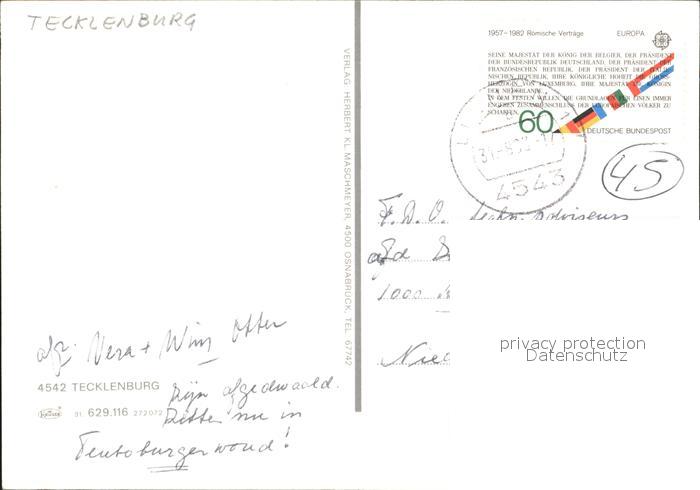 TECKLENBURG
1957–1982 Römische Verträge EUROPA
SEINE MAJESTÄT DER KÖNIG DER BELGIER, DER PRÄSIDENT
DER BUNDESREPUBLIK DEUTSCHLAND, DER PRÄSIDENT DER
FRANZÖSISCHEN REPUBLIK, DER PRÄSIDENT DER ITALIE-
NISCHEN REPUBLIK, IHRE KÖNIGLICHE HOHEIT DIE GROSS-
HERZOGIN VON LUXEMBURG, IHRE MAJESTÄT DIE KÖNIGIN
DER NIEDERLANDE,
IN DEM FESTEN WILLEN, DIE GRUNDLAGEN FÜR EINEN IMMER
ENGEREN ZUSAMMENSCHLUSS DER EUROPÄISCHEN VÖLKER ZU
SCHAFFEN
60
DEUTSCHE BUNDESPOST
4543
45
VERLAG HERBERT KL. MASCHMEYER, 4500 OSNABRÜCK, TEL. 67742
F.D.O. techn. adviseurs
afd
1000
Nied
privacy protection
Datenschutz
afz: Vera + Wim Otter
4542 TECKLENBURG
31 629.116 272072
Zijn afgedwaald.
Zitten nu in
Teutoburgerwoud!